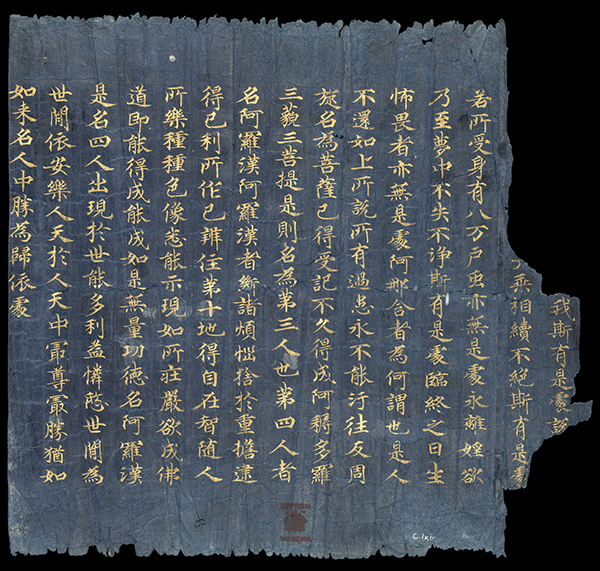 我斯有是處說
乘相續不絕斯有是處
若所受身有八万戶虫亦無是處永離婬欲
乃至夢中不失不淨斯有是處臨終之日生
怖畏者亦無是處阿那含者為何謂也是人
不還如上所說所有過患永不能汙往反周
旋名為菩薩已得受記不久得成阿耨多羅
三藐三菩提是則名為第三人也第四人者
名阿羅漢阿羅漢者斷諸煩惱捨於重擔逮
得己利所作已辦住第十地得自在智隨人
所樂種種色像悉能示現如所莊嚴欲成佛
道即能得成能成如是無量功德名阿羅漢
是名四人出現於世能多利益憐愍世間為
世間依安樂人天於人天中冣尊冣勝猶如
如来名人中勝為歸依處
BRITISH
MUSEUM